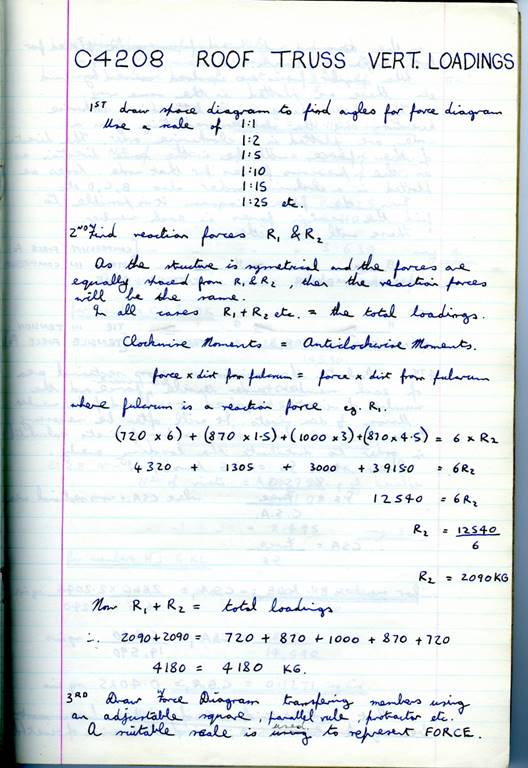 C4208 ROOF TRUSS VERT. LOADINGS
1ST draw space diagram to find angles for force diagram
Use a scale of 1:1
1:2
1:5
1:10
1:15
1:25 etc.
2ND Find reaction forces R1 & R2
As the structure is symetrical and the forces are
equally spaced from R1 & R2, then the reaction forces
will be the same.
In all cases R1 + R2 etc. = the total loadings.
Clockwise Moments = Anticlockwise Moments.
force x dist from fulcrum = force x dist from fulcrum
where fulcrum is a reaction force eg. R1.
(720 x 6) + (870 x 1·5) + (1000 x 3) + (870 x 4·5) = 6 x R2
4320 + 1305 + 3000 + 39150 = 6R2
12540 = 6R2
R2 = 12540
6
R2 = 2090KG
Now R1 + R2 = total loadings
∴ 2090 + 2090 = 720 + 870 + 1000 + 870 + 720
4180 = 4180 KG.
3RD Draw Force Diagram transfering members using
an adjustable square, parallel rule, protractor etc.
A suitable scale is using used to represent FORCE.